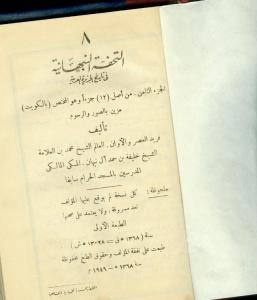 ٨
التحفة النبهانية
في تاريخ الجزيرة العربية
الجزء الثامن . من أصل (١٢) جزءاً وهو المختص (بالكويت)
مزين بالصور والرسوم
تأليف
فريد العصر والأوان . العالم الشيخ محمد بن العلامة
الشيخ خليفة بن حمد آل نبهان . المكي المالكي
المدرسين بالمسجد الحرام سابقا
ملحوظة : كل نسخة لم يوقع عليها المؤلف
تعد مسروقة . ولا يعتمد على صحتها
الطبعة الأولى
سنة (١٣٦٨ هـ ق — ١٣٠٢٨ هـ ش)
طبعت على نفقة المؤلف وحقوق الطبع محفوظة
١٣٦٨ هـ — ١٩٤٩ م